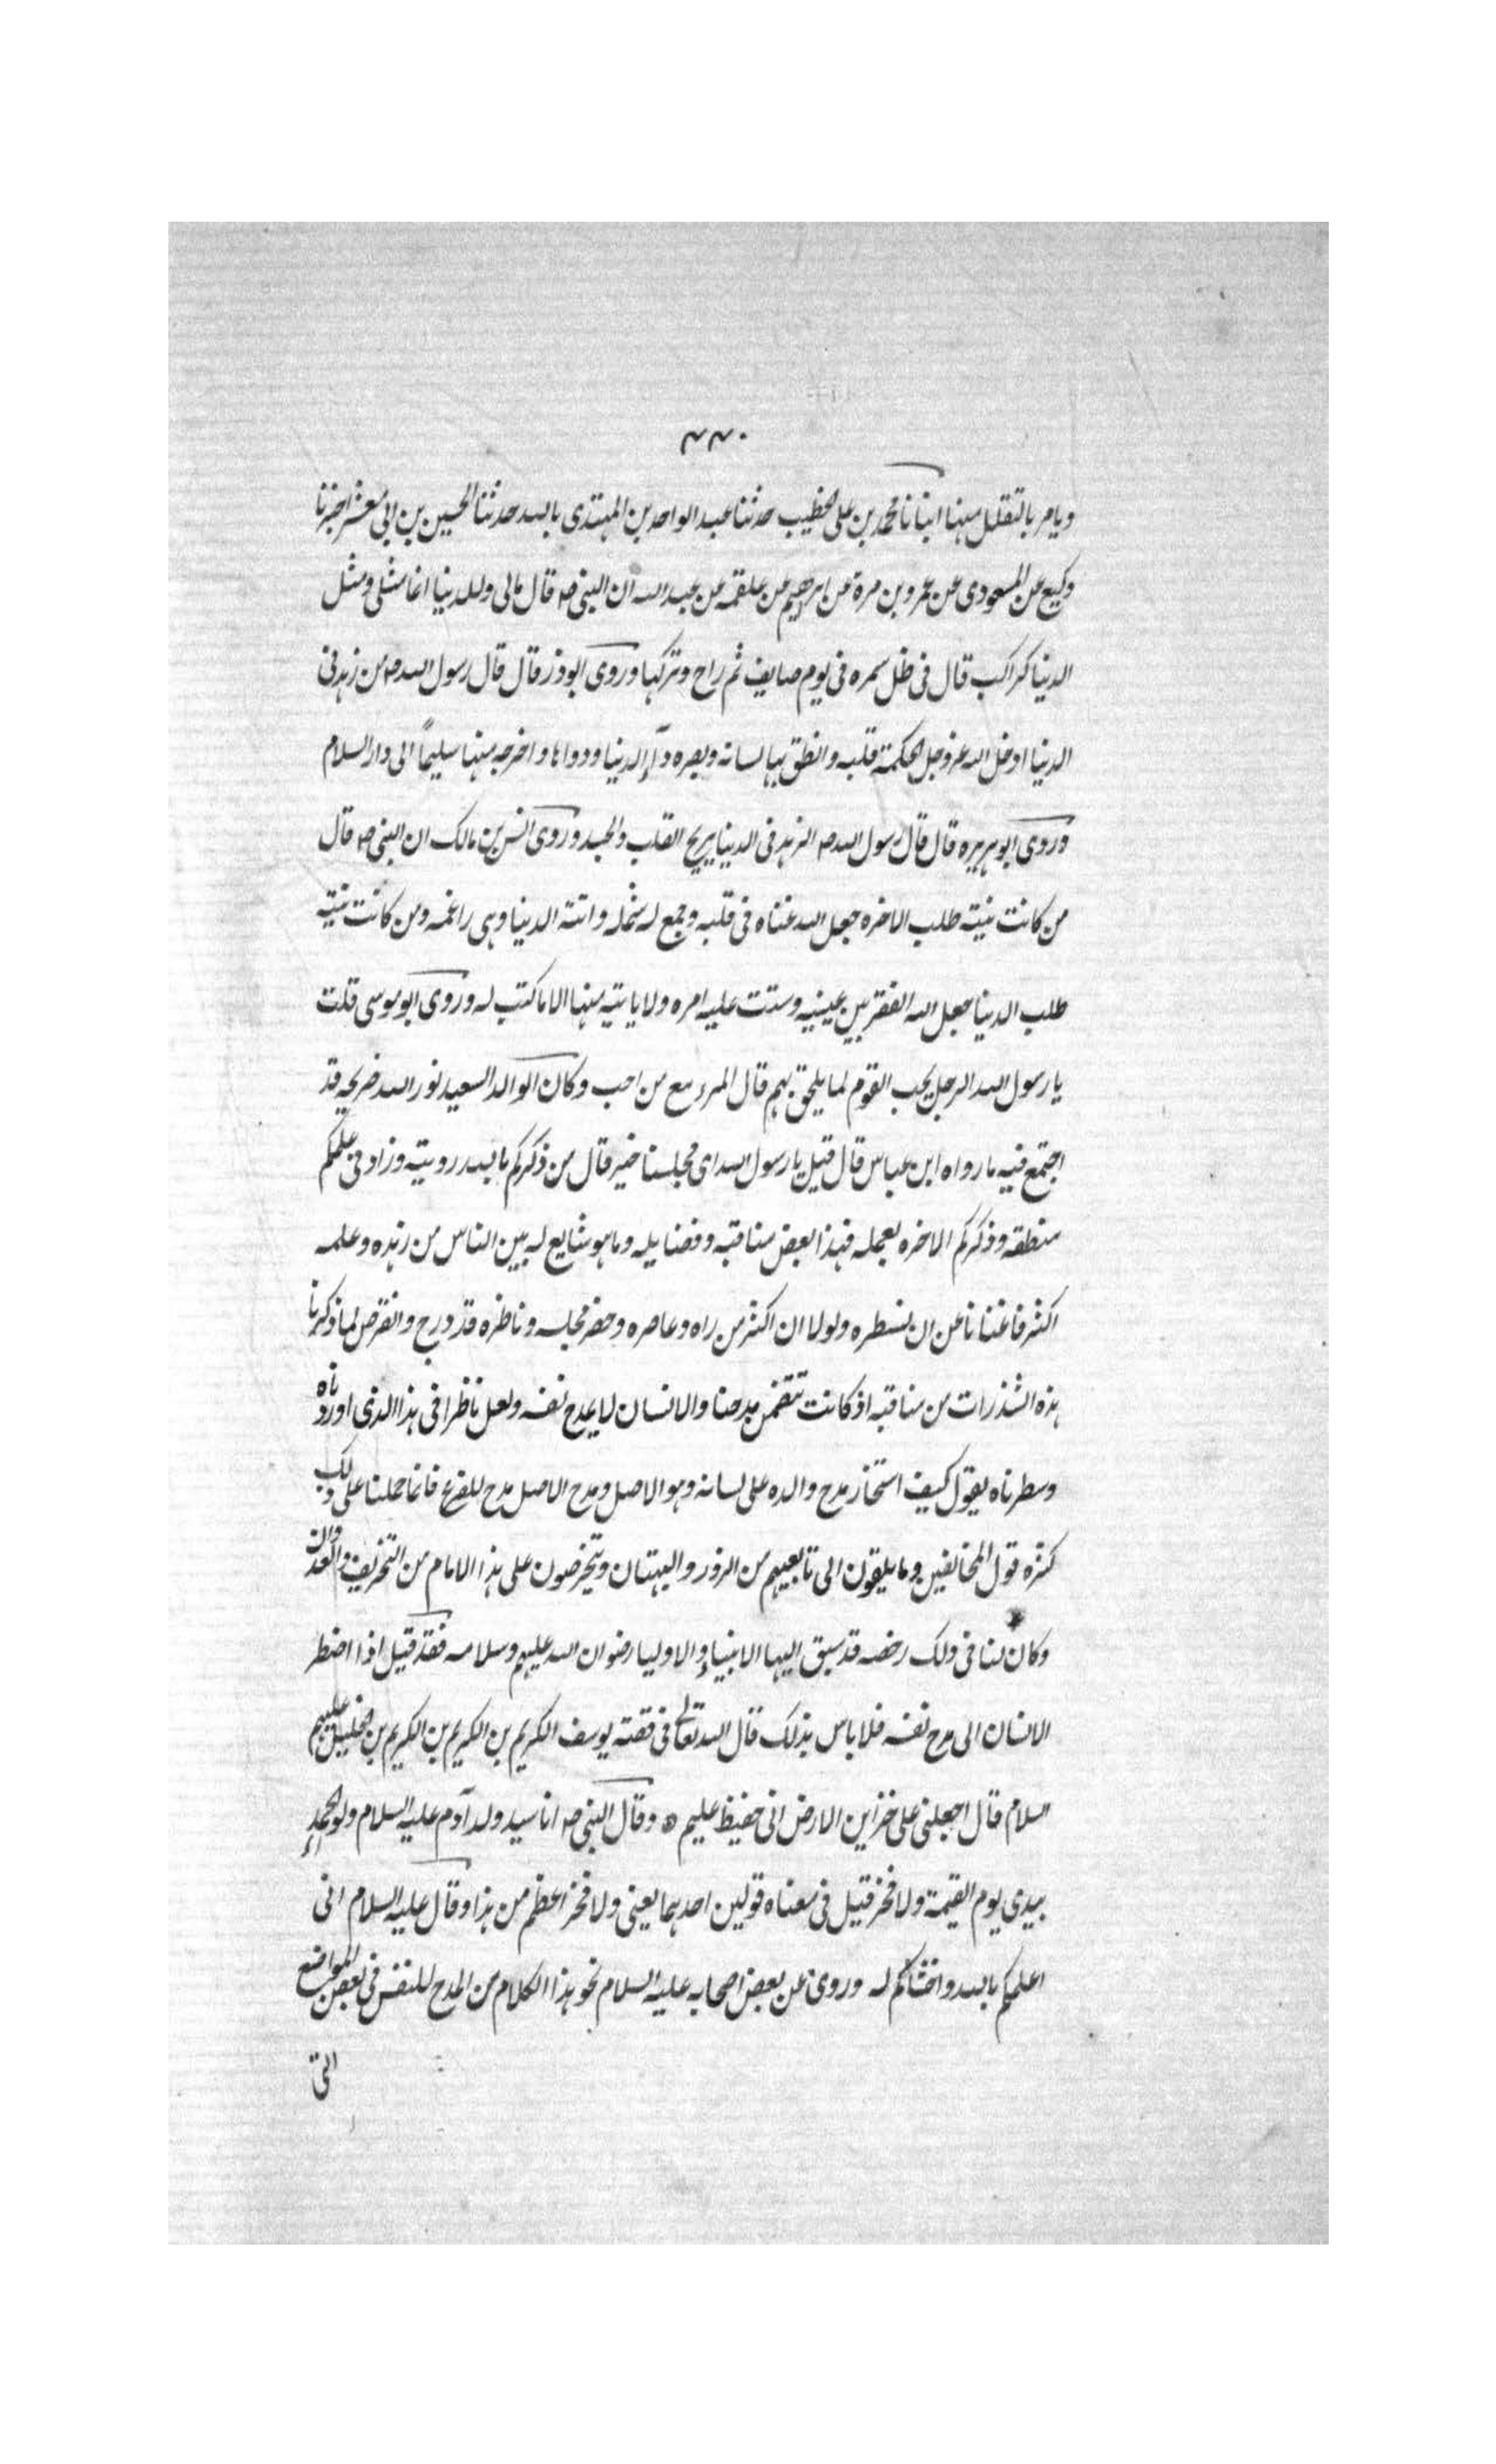 ٤٤٠
ويامر بالتقلل منها انبانا محمد بن على الخطيب حدثنا عبد الواحد بن المهتدى بالله حدثنا الحسين بن ابى معشر اخبرنا
وكيع عن المسعودى عن عمرو بن مرة عن ابرهيم عن علقمه عن عبد الله ان النبى صه قال مالى وللدنيا انما مثلى ومثل
الدنيا كراكب قال فى ظل سمره فى يوم صايف ثم راح وتركها وروى ابوذر قال قال رسول الله صه من زهد فى
الدنيا ادخل الله عز وجل الحكمة قلبه وانطق بها لسانه وبصره داء الدنيا ودواها واخرجه منها سليماً الى دار السلام
وروى ابو هريره قال قال رسول الله صه الزهد فى الدنيا يريح القلب والجسد وروى انس بن مالك ان النبى صه قال
من كانت نيته طلب الاخره جعل الله غناه فى قلبه وجمع له شمله واتته الدنيا وهى راغمه ومن كانت نيته
طلب الدنيا جعل الله الفقر بين عينيه وشتت عليه امره ولا ياتيه منها الا ما كتب له وروى ابو موسى قلت
يا رسول الله الرجل يحب القوم لما يلحق بهم قال المرء مع من احب وكان الوالد السعيد نور الله ضريحه قد
اجتمع فيه ما رواه ابن عباس قال قيل يا رسول الله اى مجلسنا خير قال من ذكركم بالله رويته وزاد فى علمكم
منطقه وذكركم الاخره بعمله فهذا بعض مناقبه وفضايله وما هو شايع له بين الناس من زهده وعلمه
اكثر فاغنانا عن ان نسطره ولولا ان اكثر من راه وعاصره وحضر مجلسه وناظره قد درج وانقرض لما ذكرنا
هذه الشذرات من مناقبه اذ كانت تتضمن مدحنا والانسان لا يمدح نفسه ولعل ناظرا فى هذا الذى اوردناه
وسطرناه يقول كيف استجاز مدح والده على لسانه وهو الاصل ومدح الاصل مدح للفرع فانما حملنا على ذلك
كثرة قول المخالفين وما يلقون الى تابعيهم من الزور والبهتان ويتخرصون على هذا الامام من التحريف والعدوان
وكان لنا فى ذلك رخصه قد سبق اليها الانبياء والاوليا رضوان الله عليهم وسلامه فقد قيل اذا اضطر
الانسان الى مدح نفسه فلا باس بذلك قال الله تعالى فى قصة يوسف الكريم بن الكريم بن الكريم بن الخليل عليهم
السلام قال اجعلنى على خزاين الارض انى حفيظ عليم ۞ وقال النبى صه انا سيد ولد آدم عليه السلام ولواء الحمد
بيدى يوم القيمة ولا فخر قيل فى معناه قولين احدهما يعنى ولا فخر اعظم من هذا وقال عليه السلام انى
اعلمكم بالله واخشاكم له وروى عن بعض اصحابه عليه السلام نحو هذا الكلام من المدح للنفس فى بعض المواضع
التى